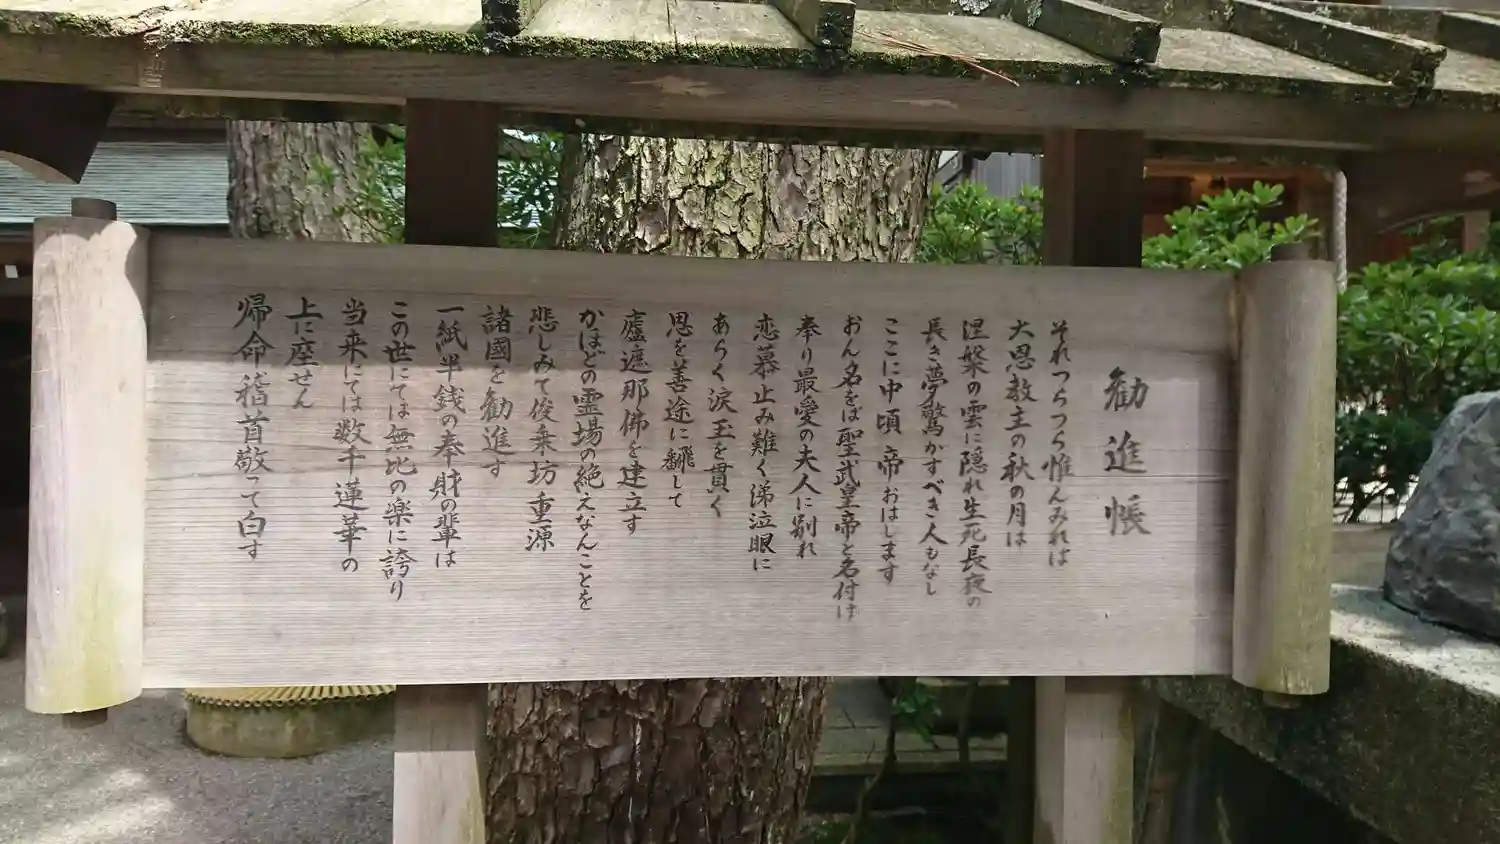 勧進帳
それつらつら惟んみれは
大恩教主の秋の月は
涅槃の雲に隠れ生死長夜の
長き夢驚かすべき人もなし
ここに中頃帝おはします
おん名をば聖武皇帝と名付け
奉り最愛の夫人に別れ
恋慕止み難く涕泣眼に
あらく涙玉を貫く
思を善途に飜して
廬遮那佛を建立す
かほどの霊場の絶えなんことを
悲しみて俊乗坊重源
諸國を勧進す
一紙半銭の奉財の輩は
この世にては無比の楽に誇り
当来にては数千蓮華の
上に座せん
帰命稽首敬って白す